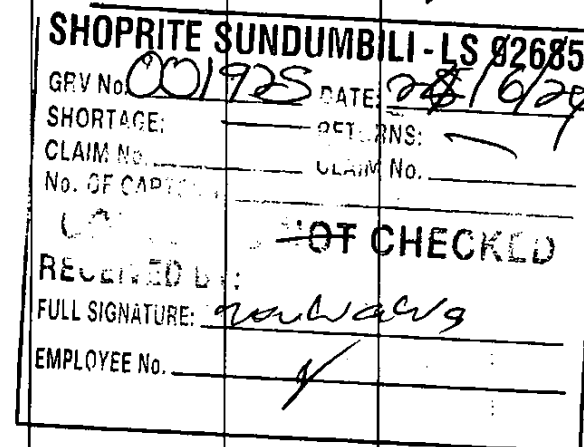 SHOPRITE SUNDUMBILI - LS 92685
GRV No. 001925 DATE: 28/6/24
SHORTAGE: — RETURNS: —
CLAIM No. CLAIM No.
No. OF
NOT CHECKED
RECEIVED BY:
FULL SIGNATURE:
EMPLOYEE No.